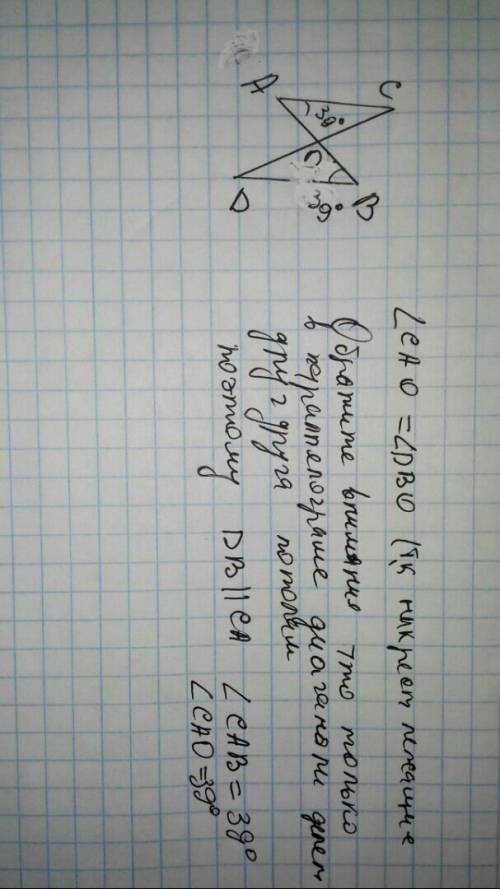 A
C
39°
O
B
39°
D
∠CAO = ∠DBO (тк накрест лежащие
Обратите внимание что только
в параллелограме диагонали делет
друг друга пополам
поэтому DB||CA ∠CAB = 39°
∠CAO = 39°